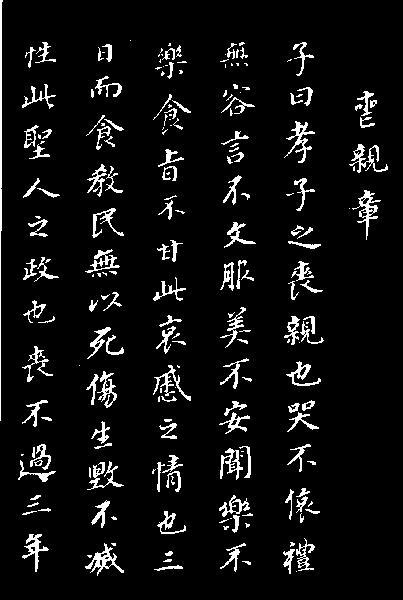 喪親章
子曰孝子之喪親也哭不偯禮
無容言不文服美不安聞樂不
樂食旨不甘此哀慼之情也三
日而食教民無以死傷生毀不滅
性此聖人之政也喪不過三年